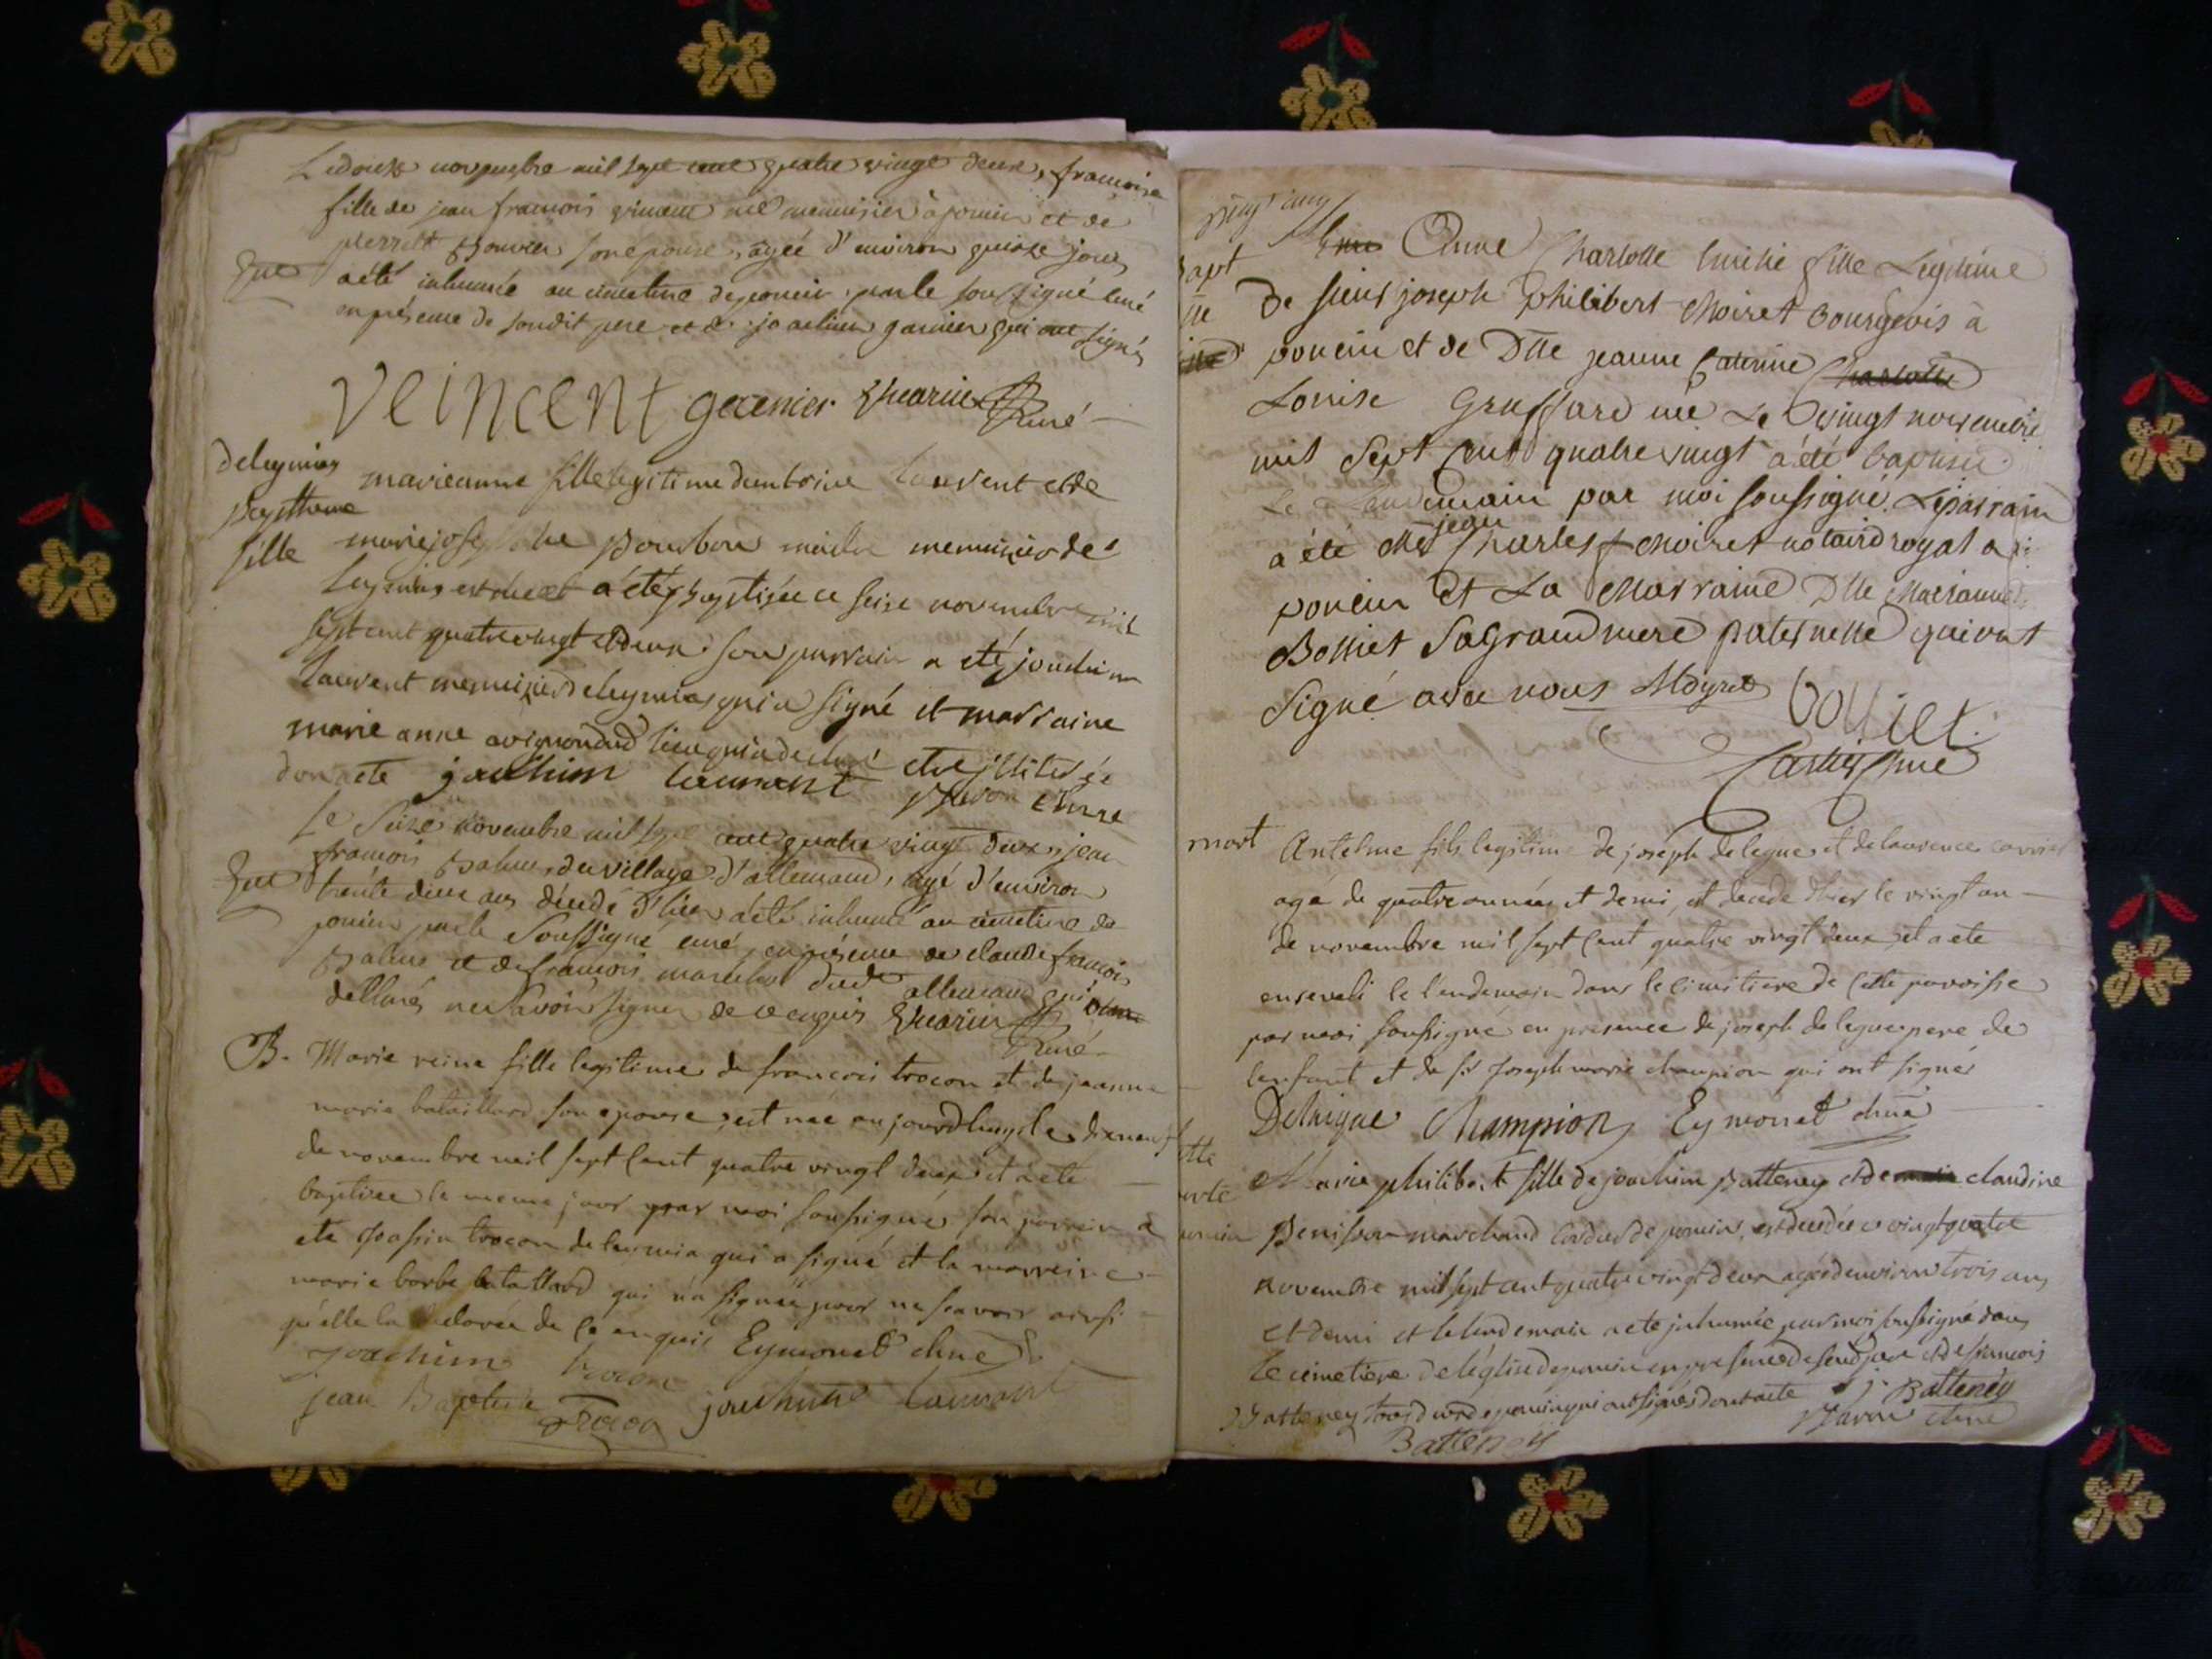 Le douze novembre mil sept cent quatre vingt deux, francoise
fille de jean francois vincent me menuisier à poncin et de
pierrette bouvier son epouse, agée d'environ quinze jours
a été inhumée au cimetiere de poncin par le soussigné curé
en présence de son dit pere et de joachim garnier qui ont signés
veincent garenier curé
de leymia marieanne fille legitime dantoine laurent et de
baptheme
fille marie josephe Bourbon maitre menuisier de
leymia est née et a été baptisée ce seise novembre mil
sept cent quatre vingt et deux son parrain a eté joachim
laurent menuisier de leymia qui a signé et marraine
marie anne dud lieu qui a declaré etre jllitérée
dont acte joachim laurant Baron
Le seize novembre mil sept cent quatre vingt deux, jean
francois du village d'allemand, agé d'environ
trente deux ans décédé d'hier a été inhumé au cimetiere de
poncin par le soussigné curé, en présence de claude francois
et de francois dud allemand qui ont
declarés ne savoir signer de ce enquis curé
B. Marie reine fille legitime de francois trocon et de jeanne
marie bataillard son epouse, est née aujourdhuy le dixneuf
de novembre mil sept cent quatre vingt deux et a ete
baptisée le meme jour par moi soussigné son parrain a
ete joassin trocon de leymia qui a signé et la marreine
marie barbe batallard qui n'a signée pour ne scavoir ainsi
qu'elle la declarée de ce enquis Eymonet
joachim trocon
jean Baptiste Trocon joachim laurant
vingt cinq
bapt Anne Charlotte Emilie fille Legitime
de sieur joseph philibert Moiret bourgeois à
poncin et de Dlle jeanne Caterine Charlotte
Louise Gruffard née Le vingt novembre
mil Sept Cent quatre vingt a été baptisée
Le Lendemain par moi soussigné. Le parrain
a été Me jean Charles Moiret notaire royal a
poncin et La Marraine Dlle Marianne
Bolliet Sa Grand mere paternelle qui ont
Signé avec nous Moyret Bolliet
mort Antelme fils legitime de joseph delegue et de laurence carrier
agé de quatre années et demi, est decede d'hier le vingt un
de novembre mil sept cent quatre vingt deux, et a ete
enseveli le lendemain dans le cimitiere de cette paroisse
par moi soussigné en presence de joseph delegue pere de
lenfant et de sr joseph marie champion qui ont signés
Delaigue Champion Eymonet
Marie philiberte fille de joachim Batteney et de claudine
Benisson marchand de poncin, est decedée ce vingt quatre
novembre mil sept cent quatre vingt deux agée denviron trois ans
et demi et le lendemain a ete jnhumée par moi soussigné dans
le cimetiere de léglise de poncin en presence de sond pere et de francois
Batteney tous deux de poncin qui ont signés dont acte j. Batteney
Batteney Baron